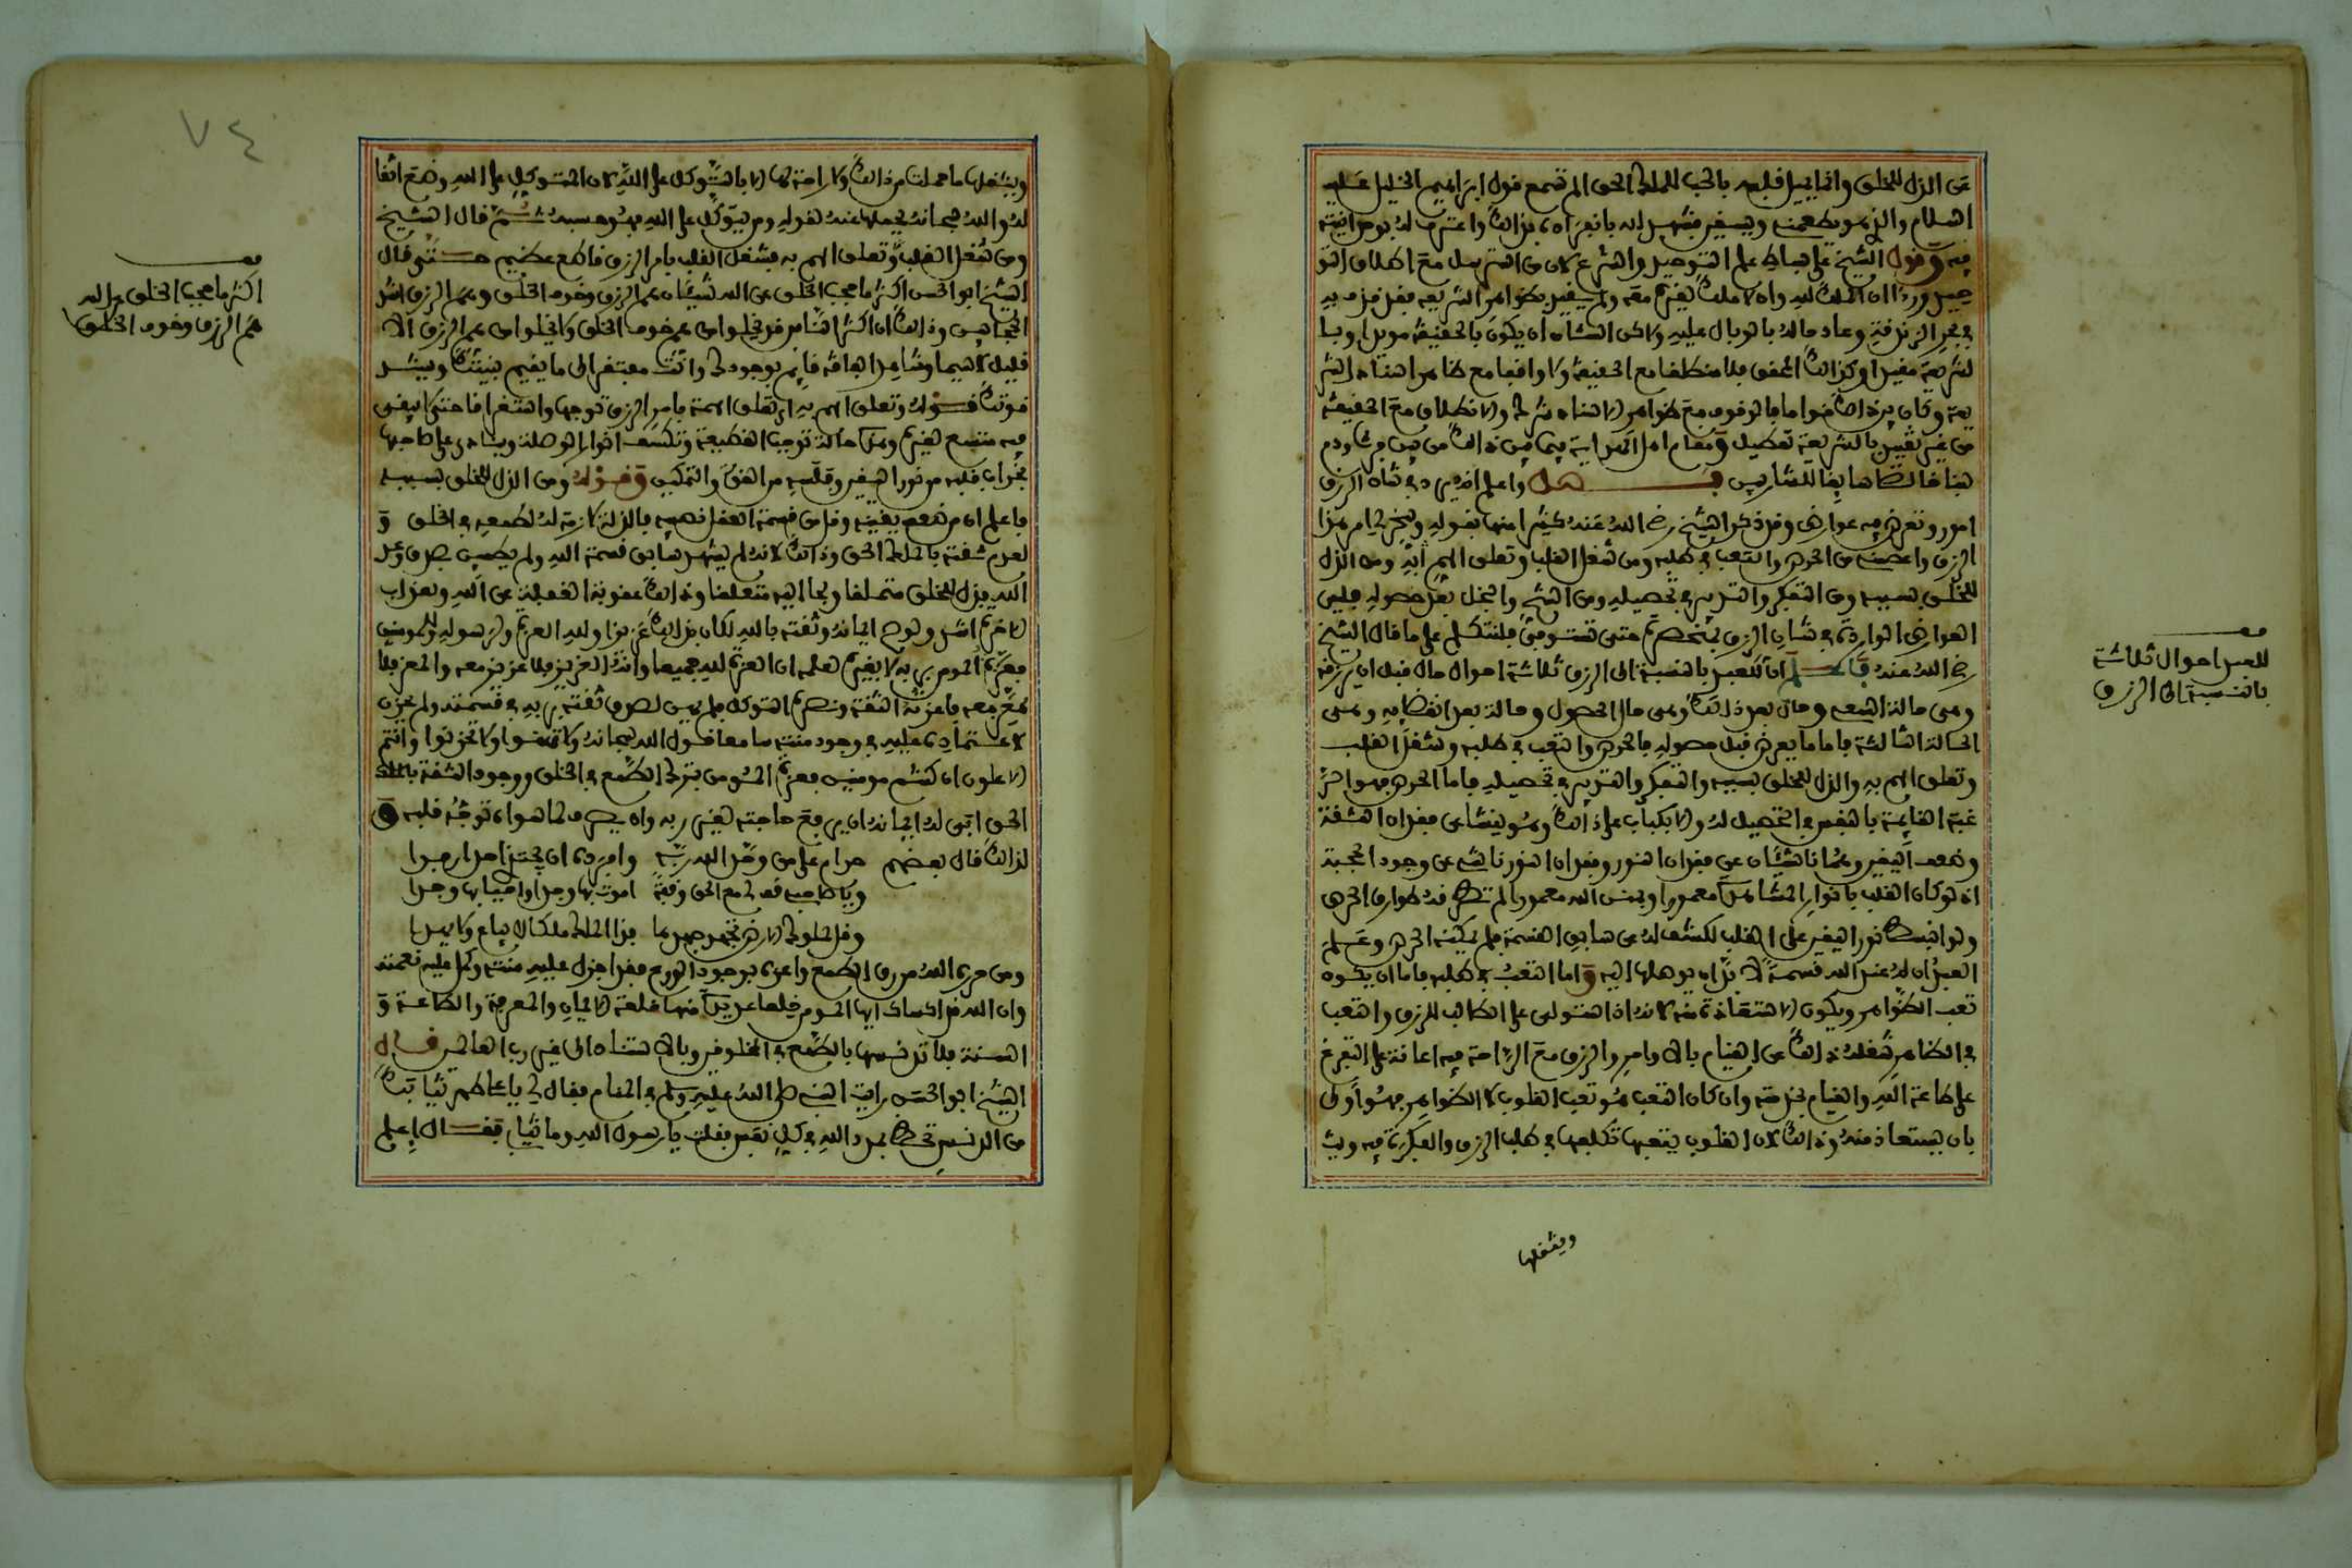 عن الذل للخلق وانما يميل قلبه بالحب للملك الحق الم تسمع قول ابراهيم الخليل عليه
السلام والذي هو يطعمني ويسقين فشهد لله بانفراده بذالك واعترف له بوحدانيته
فيه وقول الشيخ على بساط علم التوحيد والشرع لان من استرسل مع اطلاق التو
حيد وراى ان الملك لله وان لا ملك لغيره معه ولم يتقيد بظواهر الشريعة فقد قذف به
في بحر الزندقة وعاد حاله بالوبال عليه ولاكن الشان ان يكون بالحقيقة مويدا وبا
لشريعة مقيدا وكذالك المحقق فلا منطلقا مع الحقيقة ولا واقفا مع ظاهر اسناد الشر
يعة وكان بين ذالك قواما فالوقوف مع ظواهر الاسناد شرك والانطلاق مع الحقيقة
من غير تقييد بالشريعة تعطيل ومقام اهل الهداية فيما بين ذالك من بين فرث ودم
لبنا خالصا سايغا للشاربين فصل واعلم انه يرد في شان الرزق
امور وتعرض فيه عوارض وقد ذكر الشيخ رضي الله عنه كثيرا منها بقوله وسخر لي امر هذا
الرزق واعصمني من الحرص والتعب في طلبه ومن شغل القلب وتعلق الهم به ومن الذل
للخلق بسببه ومن التفكر والتدبير في تحصيله ومن الشح والبخل بعد حصوله وليس
العوارض الواردة في شان الرزق تنحصر حتى تستوفى فلنتكلم على ما قال الشيخ
رضي الله عنه فاعلم ان للعبد بالنسبة الى الرزق ثلاثة احوال حال قبل ان يرزقه
وهي حالة السعي وحال بعد ذلك وهي حال الحصول وحالة بعد انقضايه وهي
الحالة الثالثة فاما ما يعرض قبل حصوله فالحرص والتعب في طلبه وشغل القلب
وتعلق الهم به والذل للخلق بسببه والتفكر والتدبير في تحصيله فاما الحرص فهو انحر
غبة القايمة بالنفس في التحصيل له والانكباب على ذالك وهو ينشا عن فقدان الثقة
وضعف اليقين وهما ناشئان عن فقدان النور وفقدان النور ناشئ عن وجود الحجبة
اذ لو كان القلب بانوار المشاهدة معمورا وبمنن الله مغمورا لم تطرقه طوارق الحرص
ولو انبسط نور اليقين على القلب لكشف له عن سابق القسمة فلم يمكنه الحرص وعلم
العبد ان له عند الله قسمة لا بد ان يوصلها اليه واما التعب في طلبه فاما ان يكون
تعب الظواهر ويكون الاستعاذة منه لانه اذا استولى على الطالب للرزق والتعب
في الظاهر شغله ذالك عن القيام بالاوامر والرزق مع الراحة فيه اعانة على التفرغ
على طاعة الله والقيام بخدمته وان كان التعب هو تعب القلوب لا الظواهر فهو اولى
بان يستعاذ منه وذالك لان القلوب يتعبها تكلفها في طلب الرزق والفكرة فيه ويث
ويثقلها
للعبد احوال ثلاثة
بالنسبة الى الرزق
ويثقلها ما حملت من ذالك ولا راحة لها الا بالتوكل على الله لان المتوكل على الله وضع اثقا
له والله سبحانه يحملها عنه لقوله ومن يتوكل على الله فهو حسبه ثم قال الشيخ
ومن شغل القلب وتعلق الهم به فشغل القلب بامر الرزق قاطع عظيم حتى قال
الشيخ ابو الحسن اكثر ما يحجب الخلق عن الله شيئان هم الرزق وخوف الخلق وهم الرزق اشد
الحجابين وذالك ان اكثر الناس قد يخلوا من هم خوف الخلق ولا يخلوا من هم الرزق الا
قليل لا سيما وشاهد الفاقة قايم بوجودك وانت مفتقر الى ما يقيم بنيتك ويشد
قوتك قوله وتعلق الهم به اي تعلق الهمة بامر الرزق توجها واستغراقا حتى لا يبقى
فيه متسع لغيره وهذه حالة توجب القطيعة وتكسف انوار الوصلة وينادى على صاحبها
بخراب قلبه من نور اليقين وفلسه من الغنى والتمكين وقوله ومن الذل للخلق بسببه
فاعلم ان من ضعف يقينه وقل من قسمة العقل نصيبه فالذلة لازمة له لطمعه في الخلق و
لعدم ثقته بالملك الحق وذالك لانه لم يشهد سابق قسمة الله ولم يطمئن بصدق وعد
الله فذل للخلق متملقا ولجا اليهم متعلقا وذالك عقوبة الغفلة عن الله ولعذاب
الاخرة اشد ولو صح ايمانه وثقته بالله لكان بذالك عزيزا ولله العزة ولرسوله وللمومنين
فعزة المومن بربه لا بغيره لعلمه ان العزة لله جميعا وانه العزيز فلا عزيز معه والمعز فلا
معز معه فاعزته الثقة ونصره التوكل فلم يهن لصدق ثقته بربه في قسمته ولم يحزن
لاعتماده عليه في وجود منته سامعا قول الله سبحانه ولا تهنوا ولا تحزنوا وانتم
الاعلون ان كنتم مومنين فعزة المومن بترك الطمع في الخلق ووجود الثقة بالملك
الحق ابى له ايمانه ان يرفع حاجته لغير ربه وان يصرف لما سواه توجه قلبه و
لذالك قال بعضهم حرام على من وحد الله ربه وافرده ان يجتدي احدا رفدا
ويا صاحبي قف بي مع الحق وقفة اموت بها وجدا واحيا بها وجدا
وقل لملوك الارض تجهد جهدها فذا الملك ملك لا يباع ولا يهدا
ومن حرره الله من رق الطمع واعزه بوجود الورع فقد اجزل عليه منته وكمل عليه نعمته
وان الله قد اكساك ايها المومن خلعا عديدة منها خلعة الايمان والمعرفة والطاعة و
السنة فلا تدنسها بالطمع في المخلوقين وبالاستناد الى غير رب العالمين قال
الشيخ ابو الحسن رايت النبي صلى الله عليه وسلم في المنام فقال لي يا علي طهر ثيابك
من الدنس تحظ بمدد الله في كل نفس فقلت يا رسول الله وما ثيابي فقال اعلم
اكثر ما يحجب الخلق عن الله
هم الرزق وخوف الخلق
٧٤